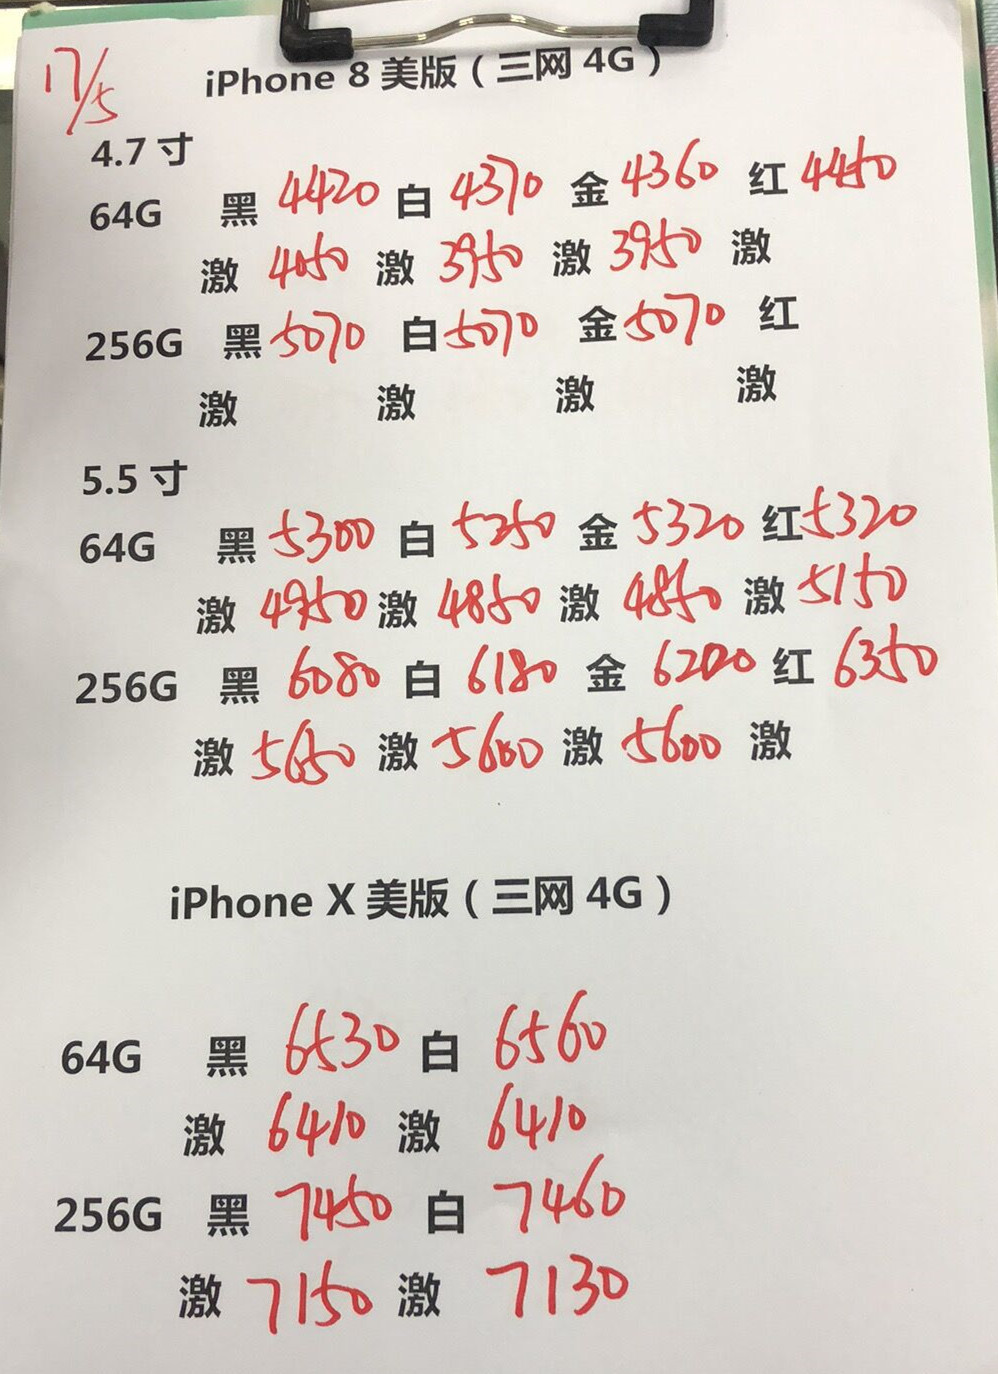 17/5
iPhone 8 美版（三网 4G）
4.7 寸
64G 黑 4420 白 4370 金 4360 红 4450
激 4050 激 3950 激 3950 激
256G 黑 5070 白 5070 金 5070 红
激 激 激 激
5.5 寸
64G 黑 5300 白 5250 金 5320 红 5320
激 4950 激 4850 激 4850 激 5150
256G 黑 6080 白 6180 金 6200 红 6350
激 5650 激 5600 激 5600 激
iPhone X 美版（三网 4G）
64G 黑 6530 白 6560
激 6410 激 6410
256G 黑 7450 白 7460
激 7150 激 7130